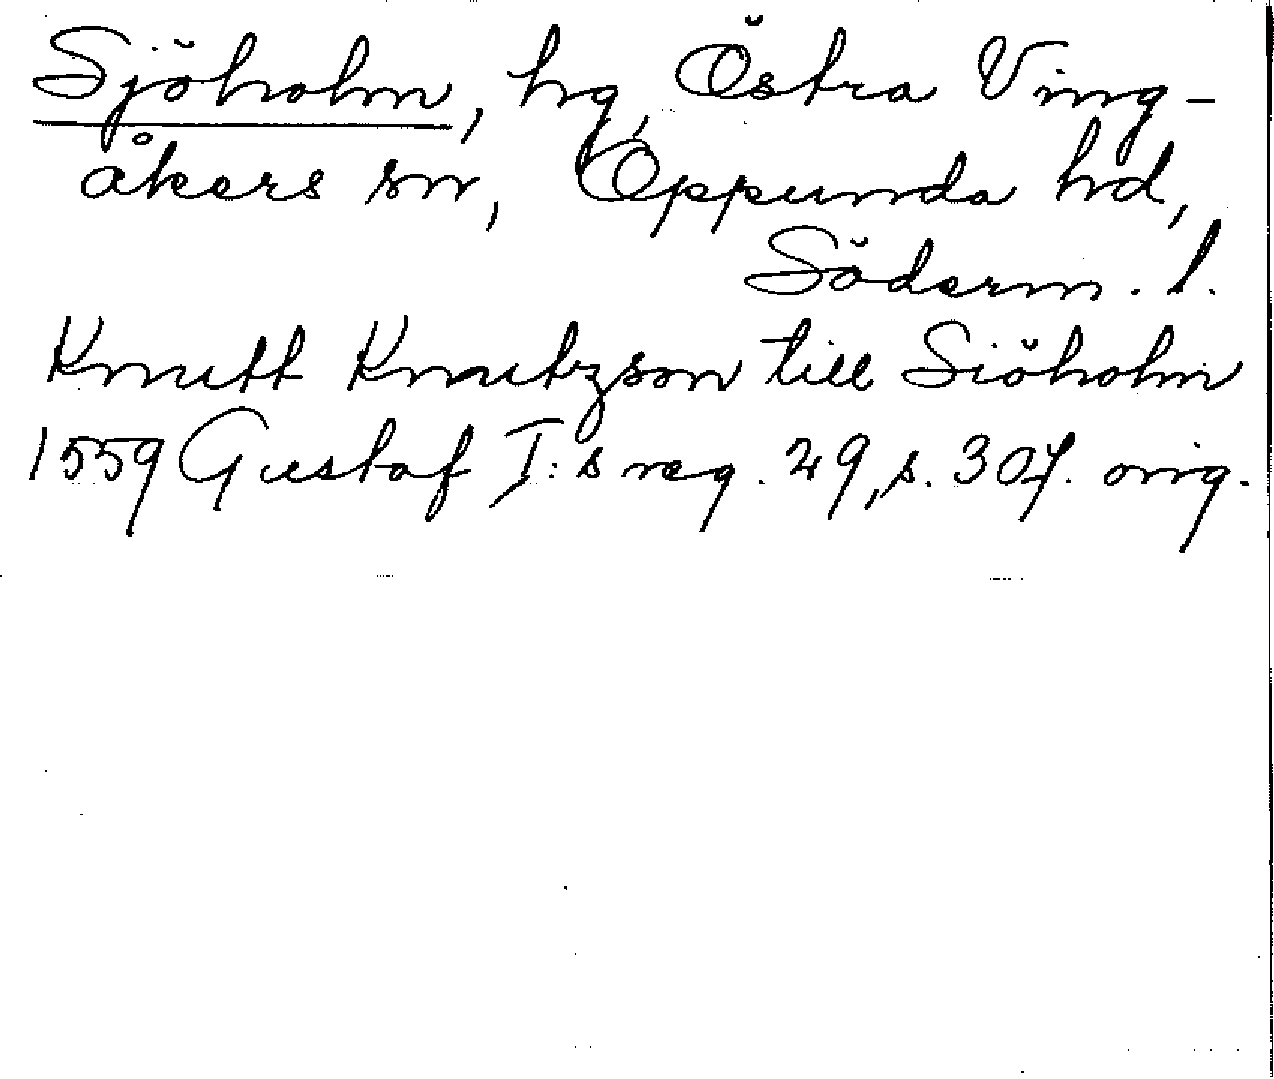 Sjöholm, hg, Östra Ving-
åkers sn, Oppunda hd,
Söderm. l.
Knutt Knutzson till Siöholm
1559 Gustaf I:s reg. 29, s. 307. orig.